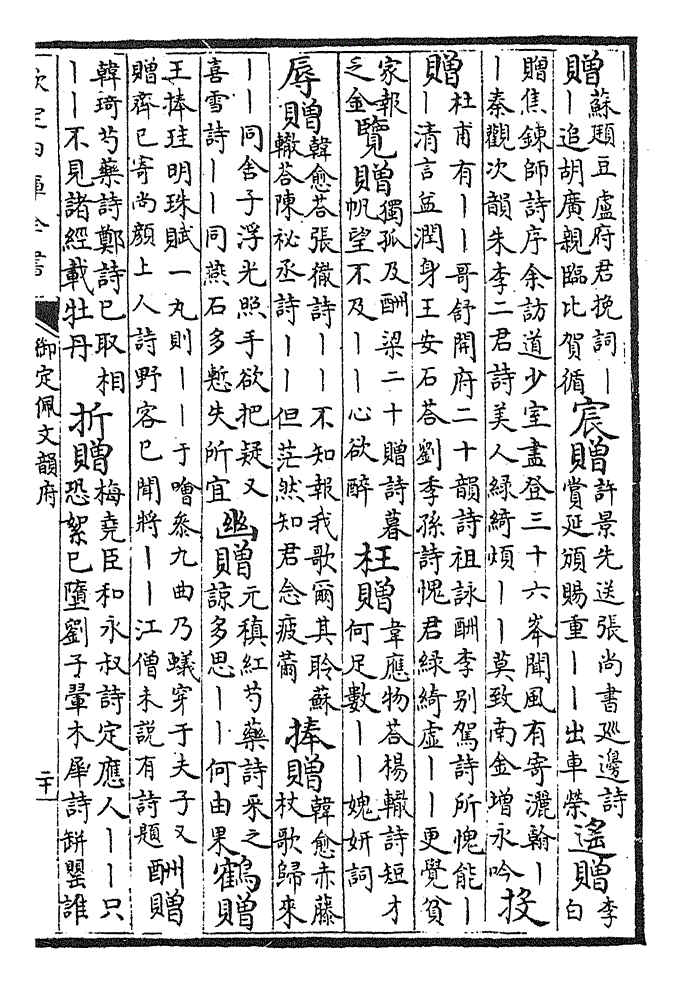 贈蘇頲豆盧府君挽詞丨丨追胡廣親臨比賀循 宸贈許景先送張尚書巡邊詩賞延頒賜重丨丨出車榮 遙贈李白
贈焦鍊師詩序余訪道少室盡登三十六峯聞風有寄灑翰丨丨秦觀次韻朱李二君詩美人綠綺煩丨丨莫致南金增永吟 投
贈杜甫有丨丨哥舒開府二十韻詩祖詠酬李别駕詩所愧能丨丨清言益潤身王安石荅劉季孫詩愧君綠綺虚丨丨更覺貧
家報乏金 覽贈獨孤及酬梁二十贈詩暮帆望不及丨丨心欲醉 枉贈韋應物荅楊轍詩短才何足數丨丨媿妍詞
辱贈韓愈荅張徹詩丨丨不知報我歌爾其聆蘇轍荅陳祕丞詩丨丨但茫然知君念疲薾 捧贈韓愈赤藤杖歌歸來
丨丨同舍子浮光照手欲把疑又喜雪詩丨丨同燕石多慙失所宜 幽贈元稹紅芍藥詩采之諒多思丨丨何由果 鶴贈
王捧珪明珠賦一丸則丨丨于噲叅九曲乃蟻穿于夫子又贈齊已寄尚顔上人詩野客已聞將丨丨江僧未説有詩題 酬贈
韓琦芍藥詩鄭詩已取相丨丨不見諸經載牡丹 折贈梅堯臣和永叔詩定應人丨丨只恐絮已墮劉子翬木犀詩缾罌誰
欽定四庫全書
御定佩文韻府
二十